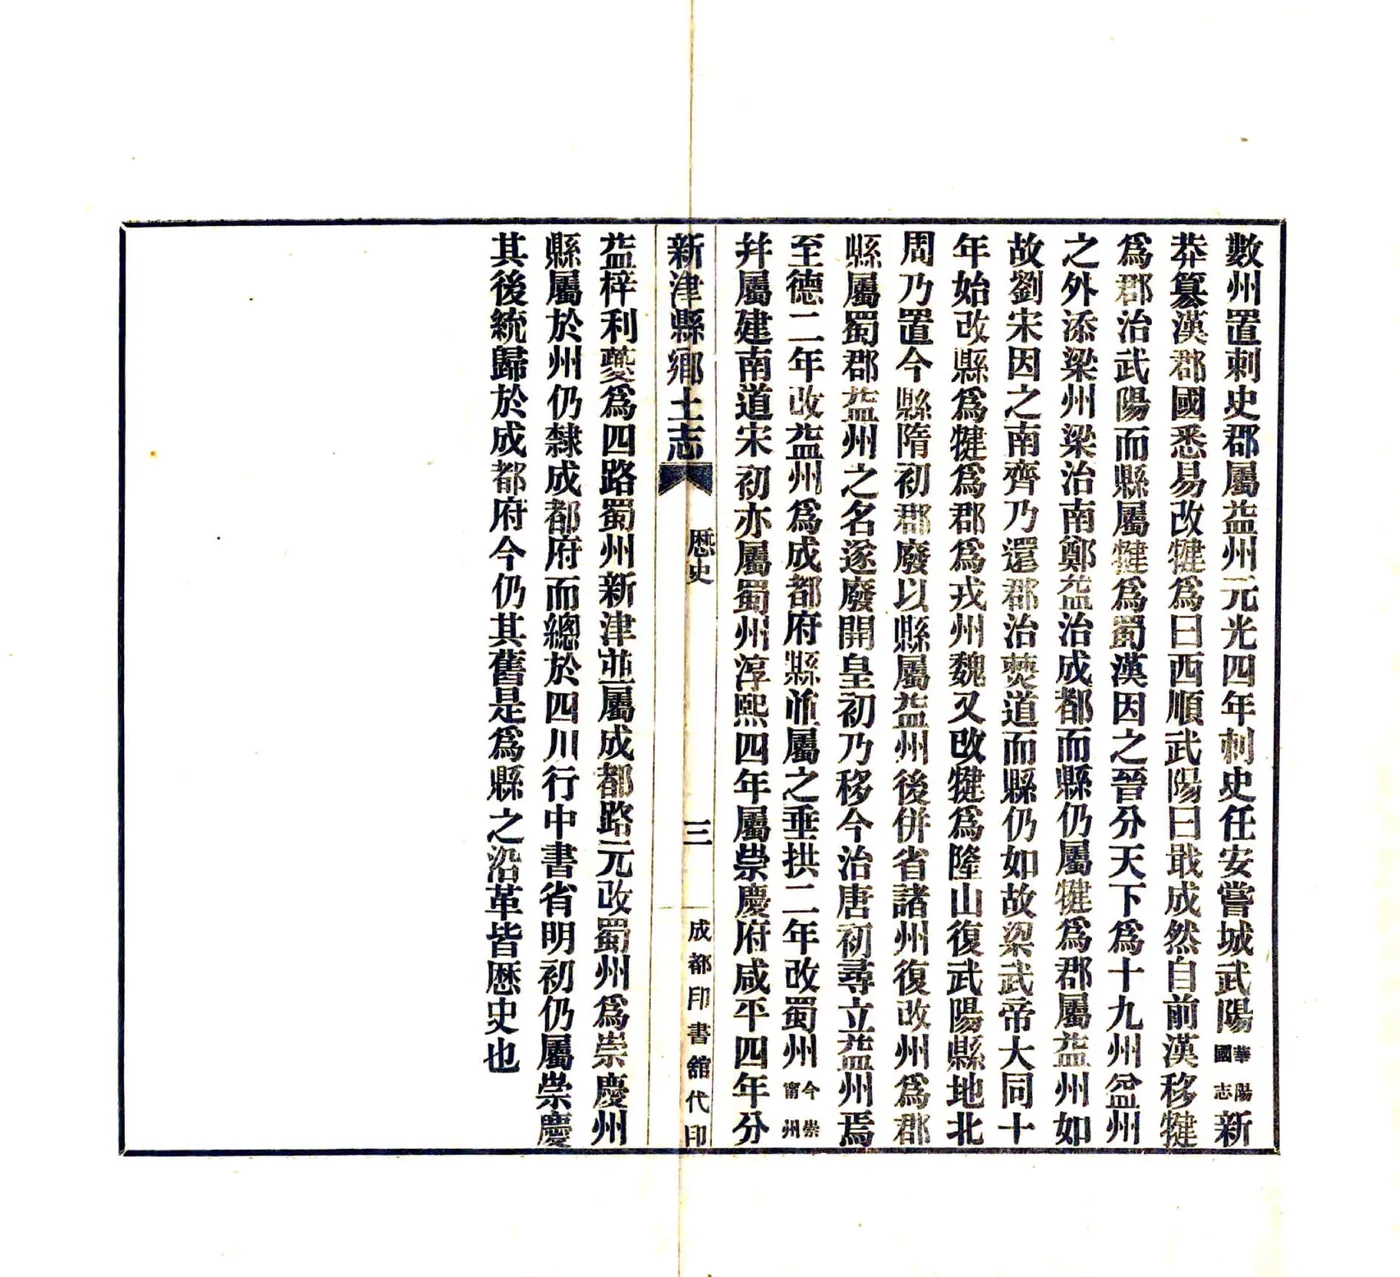 數州置刺史郡屬益州元光四年刺史任安嘗城武陽華陽國志新
莽篡漢郡國悉易改犍爲曰西順武陽曰戢成然自前漢移犍
爲郡治武陽而縣屬犍爲蜀漢因之晉分天下爲十九州益州
之外添梁州梁治南鄭益治成都而縣仍屬犍爲郡屬益州如
故劉宋因之南齊乃還郡治僰道而縣仍如故梁武帝大同十
年始改縣爲犍爲郡爲戎州魏又改犍爲隆山復武陽縣地北
周乃置今縣隋初郡廢以縣屬益州後併省諸州復改州爲郡
縣屬蜀郡益州之名遂廢開皇初乃移今治唐初尋立益州焉
至德二年改益州爲成都府縣並屬之垂拱二年改蜀州今崇甯州
并屬建南道宋初亦屬蜀州淳熙四年屬崇慶府咸平四年分
新津縣鄉土志 歷史 三 成都印書舘代印
益梓利夔爲四路蜀州新津並屬成都路元改蜀州爲崇慶州
縣屬於州仍隸成都府而總於四川行中書省明初仍屬崇慶
其後統歸於成都府今仍其舊是爲縣之沿革皆歷史也